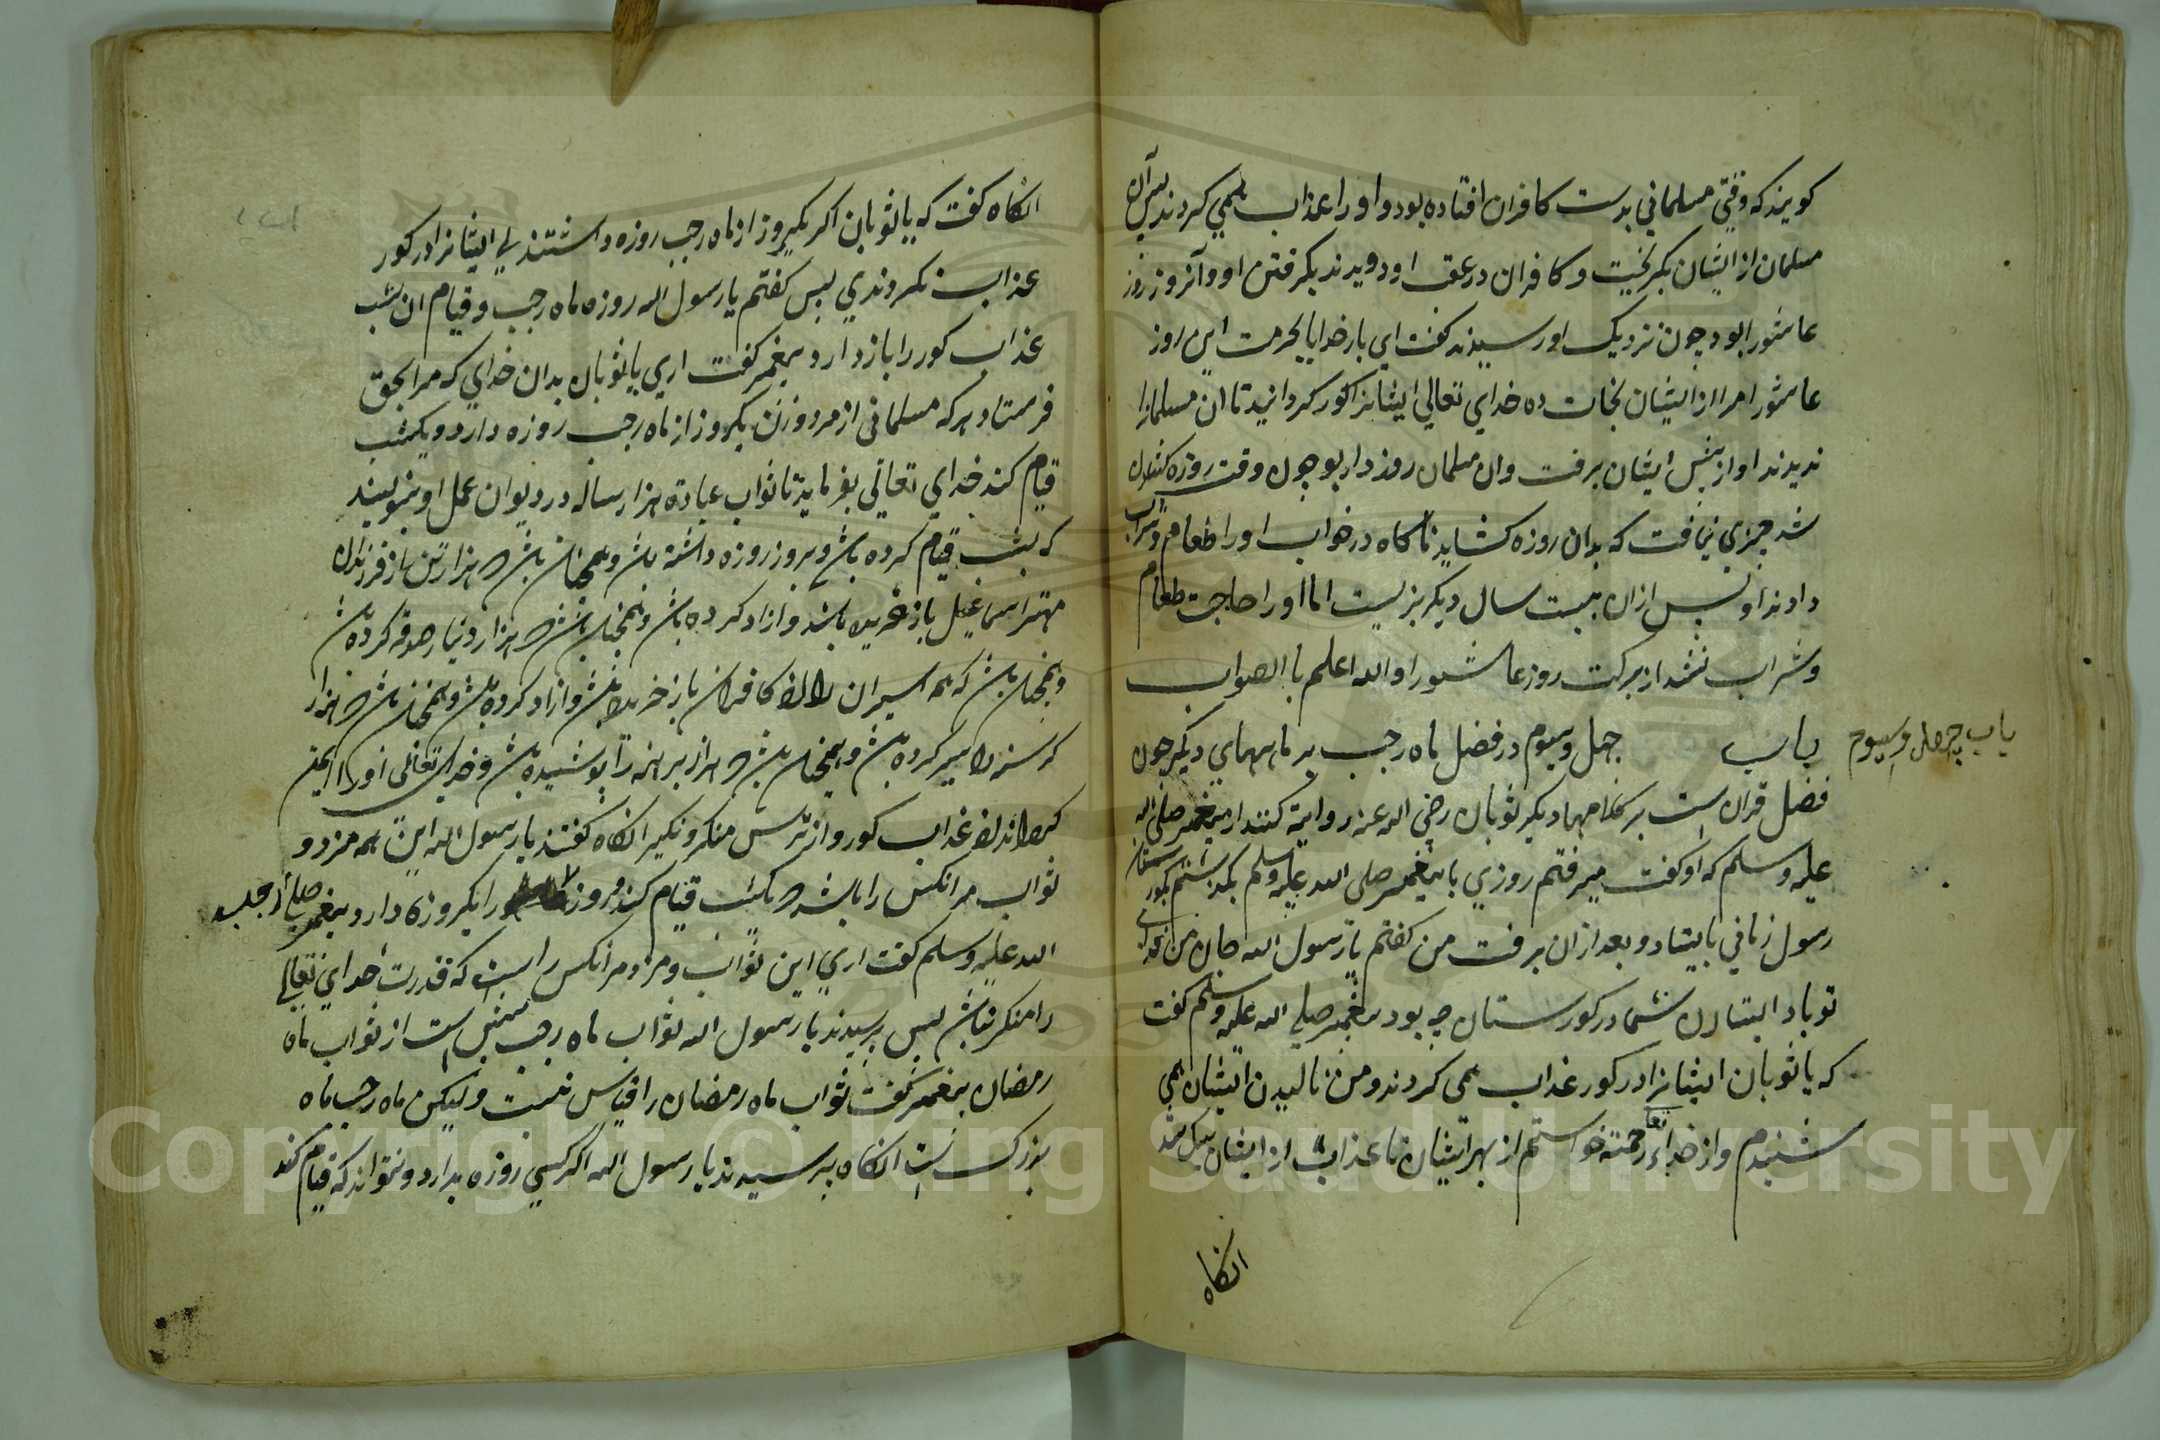 کویند که وقتي مسلماني بدست کافران افتاده بود و اورا عذاب همي کردند پس آن
مسلمان از ایشان بکریخت و کافران در عقب او دویدند بکرفتن او و آنروز روز
عاشورا بود چون نزدیک او رسیدند کفت اي بار خدایا بحرمت این روز
عاشورا مرا از ایشان نجات ده خداي تعالي ایشانرا کور کردانید تا ان مسلمانرا
ندیدند او از پیش ایشان برفت وان مسلمان روزه دار بو چون وقت روزه کشادن
شد چیزي نیافت که بدان روزه کشاید ناکاه در خواب اورا طعام و شراب
دادند او پس ازان بیست سال دیکر بزیست اما اورا حاجت طعام
و شراب نشد از برکت روز عاشورا والله اعلم باالصواب
باب چهل و سیوم
باب چهل و سیوم در فضل ماه رجب بر ماههاي دیکر چون
فضل قران است بر کلامها دیکر ثوبان رضي الله عنه روایة کنند از پیغمبر صلي الله
علیه وسلم که او کفت میرفتم روزي با پیغمبر صلی الله علیه وسلم بکذشتم بکورستان
رسول زماني بایستاد و بعد ازان برفت من کفتم یا رسول الله جان من فداي
تو باد ایستادن شما در کورستان چه بود پیغمبر صلي الله علیه وسلم کفت
که یا ثوبان ایشانرا در کور عذاب همی کردند و من نالیدن ایشان همي
شنیدم و از خداي تعالي رحمة خواستم از بهر ایشان تا عذاب از ایشان سبک شد
انکاه
انکاه کفت که یا ثوبان اکر یکروز از ماه رجب روزه داشتندي ایشانرا در کور
عذاب نکردندي پس کفتم یا رسول الله روزه ماه رجب و قیام ان شب
عذاب کور را باز دارد پیغمبر کفت اري یا ثوبان بدان خداي که مرا بحق
فرستاد هرکه مسلماني از مرد و زن یکروز از ماه رجب روزه دارد و یکشب
قیام کند خداي تعالي بفرماید تا ثواب عبادة هزار ساله در دیوان عمل او بنویسند
که بشب قیام کرده باشد و بروز روزه داشته باشد و همچنان باشد که هزار تن از فرزندان
مهتر اسماعیل باز خریده باشد و ازاد کرده باشد و همچنان باشد که هزار دینار صدقه کرده باشد
و همچنان باشد که همه اسیران را از کافران باز خریده باشد و ازاد کرده باشد و همچنان باشد که هزار
کرسنه را سیر کرده باشد و همچنان باشد که هزار برهنه را پوشیده باشد و خداي تعالی اورا ایمن
کرداند از عذاب کور و از ترس منکر و نکیر انکاه کفتند یا رسول الله این همه مزد و
ثواب مر انکس را باشد که یکشب قیام کند و روز را یکروزه دارد پیغمبر صلي
الله علیه وسلم کفت اري این ثواب و مزد مر انکس راست که قدرت خداي تعالي
را منکر نباشد پس پرسیدند یا رسول الله ثواب ماه رجب بیش است از ثواب ماه
رمضان پیغمبر کفت ثواب ماه رمضان را قیاس نیست ولیکن ماه رجب ماه
بزرک است انکاه پرسیدند یا رسول الله اکر کسي روزه بدارد و نتواند که قیام کند
Copyright © King Saud University